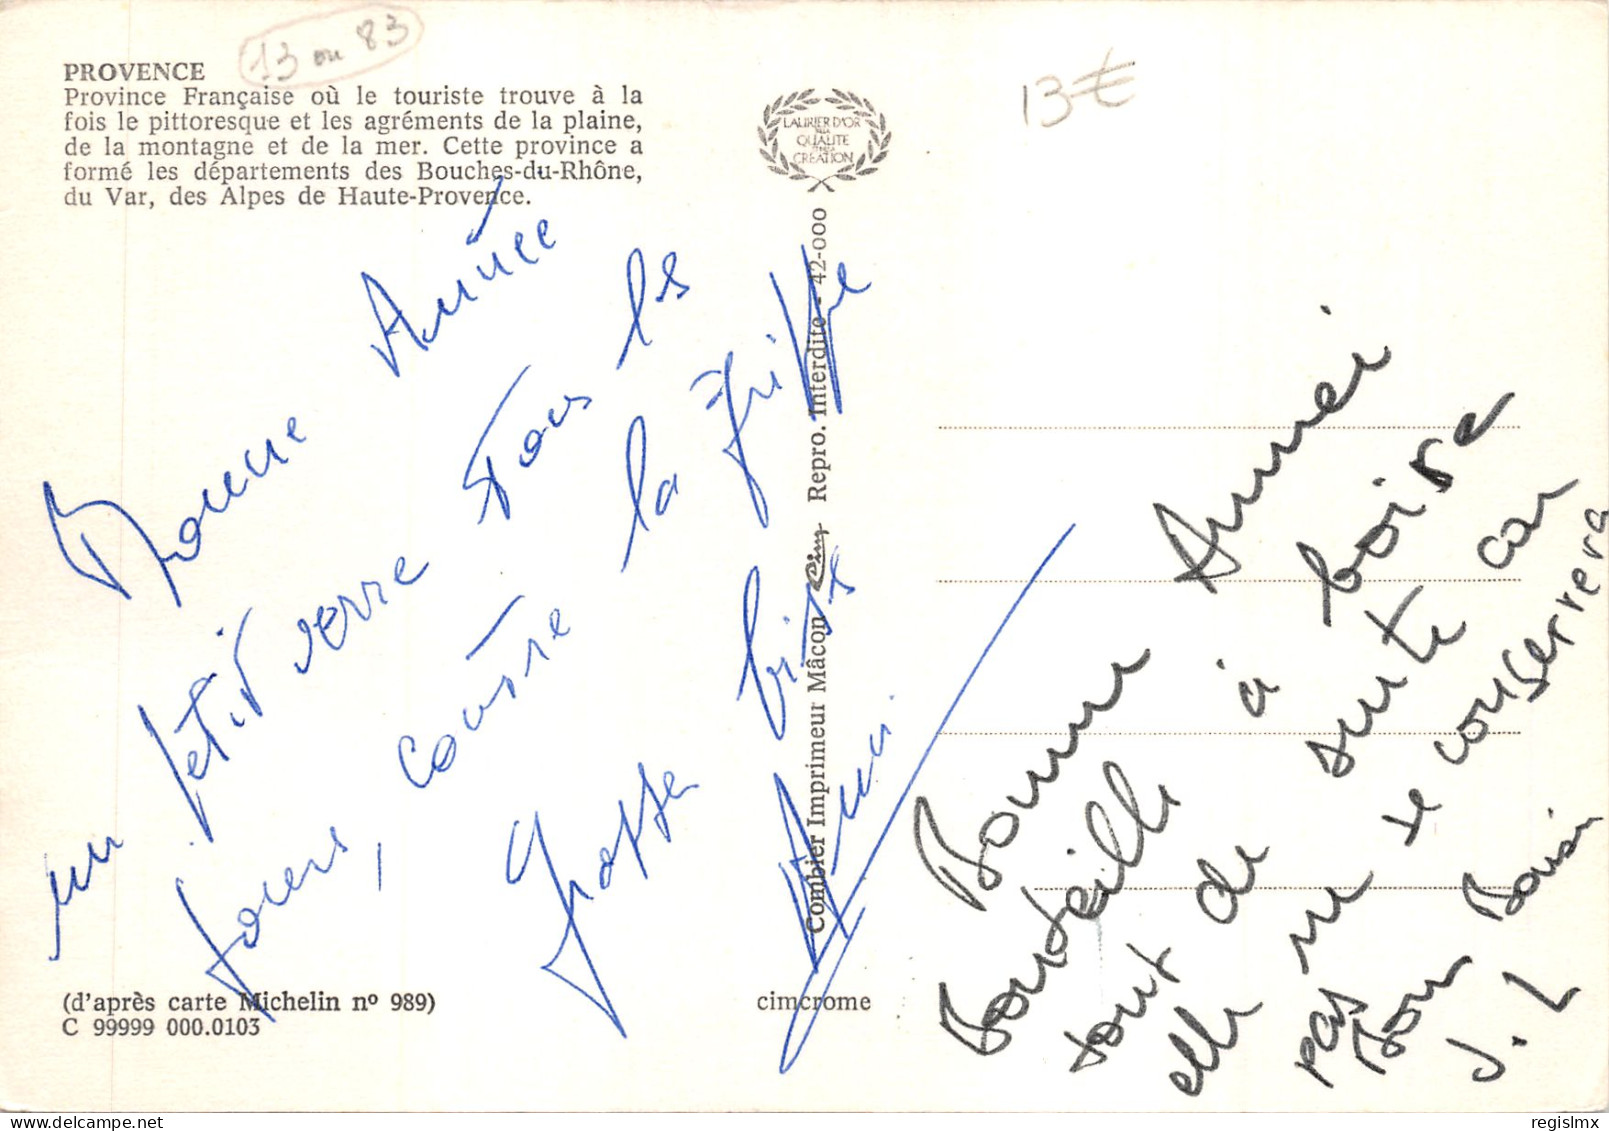 13 ou 83
PROVENCE
Province Française où le touriste trouve à la
fois le pittoresque et les agréments de la plaine,
de la montagne et de la mer. Cette province a
formé les départements des Bouches-du-Rhône,
du Var, des Alpes de Haute-Provence.
Bonne Année
un petit verre tous les
jours, contre la grippe
Grosses bises
Anni
(d'après carte Michelin nº 989)
C 99999 000.0103
LAURIER D'OR
DE LA
QUALITE
ET DE LA
CREATION
Combier Imprimeur Mâcon Cim Repro. Interdite - 42-000
cimcrome
13€
Bonne Année
Bouteille à boire
tout de suite car
elle ne se conservera
pas
Bon Baiser
J. L
regislmx